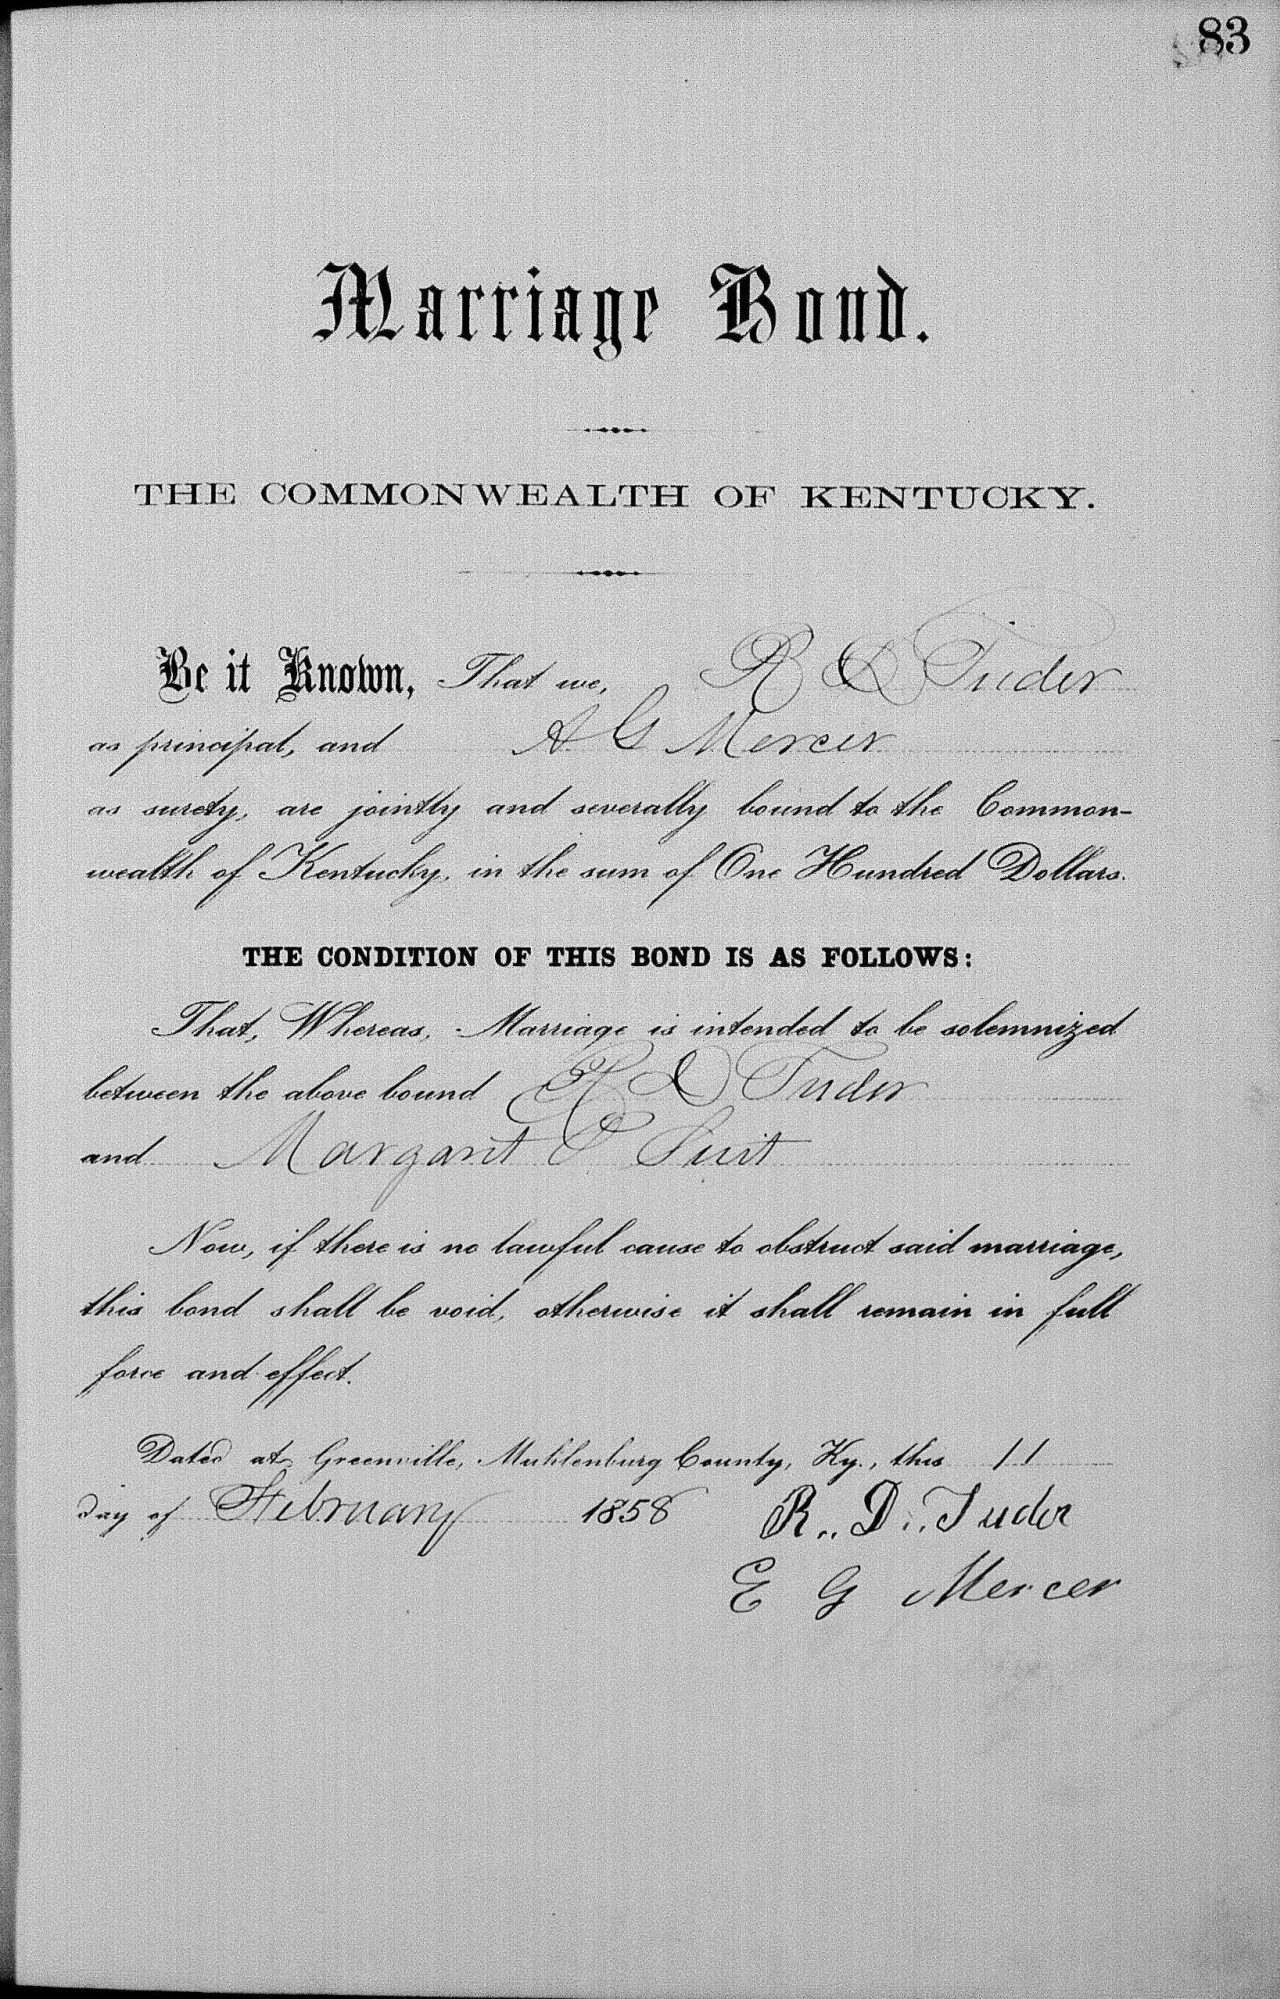 83
Marriage Bond.
THE COMMONWEALTH OF KENTUCKY.
Be it Known, That we, R D Tuder
as principal, and A. G Mercer
as surety, are jointly and severally bound to the Common-
wealth of Kentucky, in the sum of One Hundred Dollars.
THE CONDITION OF THIS BOND IS AS FOLLOWS:
That, Whereas, Marriage is intended to be solemnized
between the above bound R D Tuder
and Margaret Suit
Now, if there is no lawful cause to obstruct said marriage,
this bond shall be void, otherwise it shall remain in full
force and effect.
Dated at Greenville, Muhlenburg County, Ky., this 11
day of February 1858 R.. D... Tuder
E G Mercer